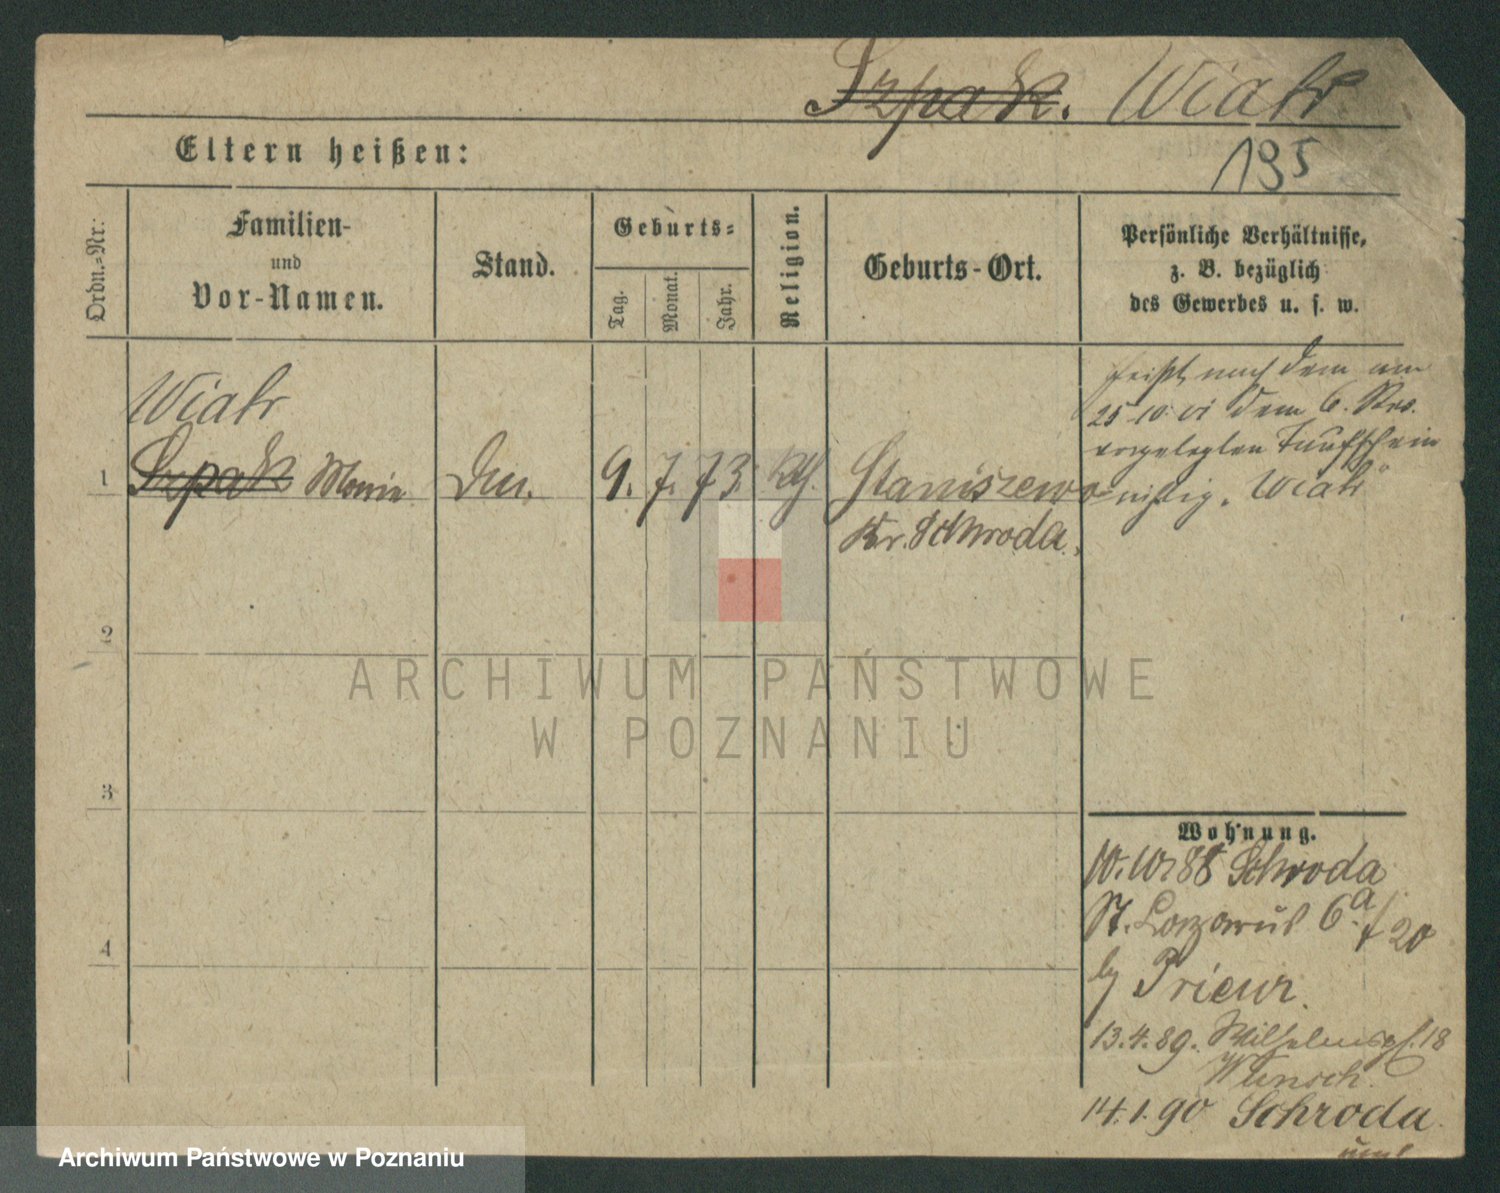 Szpak. Wiatr.
195
Eltern heißen:
Ordn.-Nr.:
Familien-
und
Vor-Namen.
Stand.
Geburts-
Tag.
Monat.
Jahr.
Religion.
Geburts-Ort.
Persönliche Verhältnisse,
z. B. bezüglich
des Gewerbes u. s. w.
heißt nach dem am
25-10. 01 dem 6. Rev.
vorgelegten Taufschein
richtig „Wiatr"
Wiatr
1 Szpak Marie 9. 7. 73. kth. Staniszewo
Kr. Schroda.
2
3
4
Wohnung.
10. 10 88 Schroda
St. Lazarus 6a/20
by Prieur.
13.4.89. Wilhelmspl. 18
Wunsch.
14.1.90 Schroda
ARCHIWUM PAŃSTWOWE
W POZNANIU
Archiwum Państwowe w Poznaniu